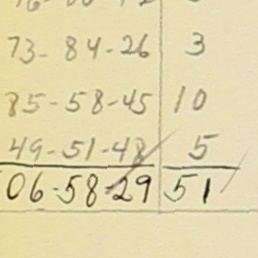 73-84-26 3
85-58-45 10
49-51-48 5
06-58-29 51